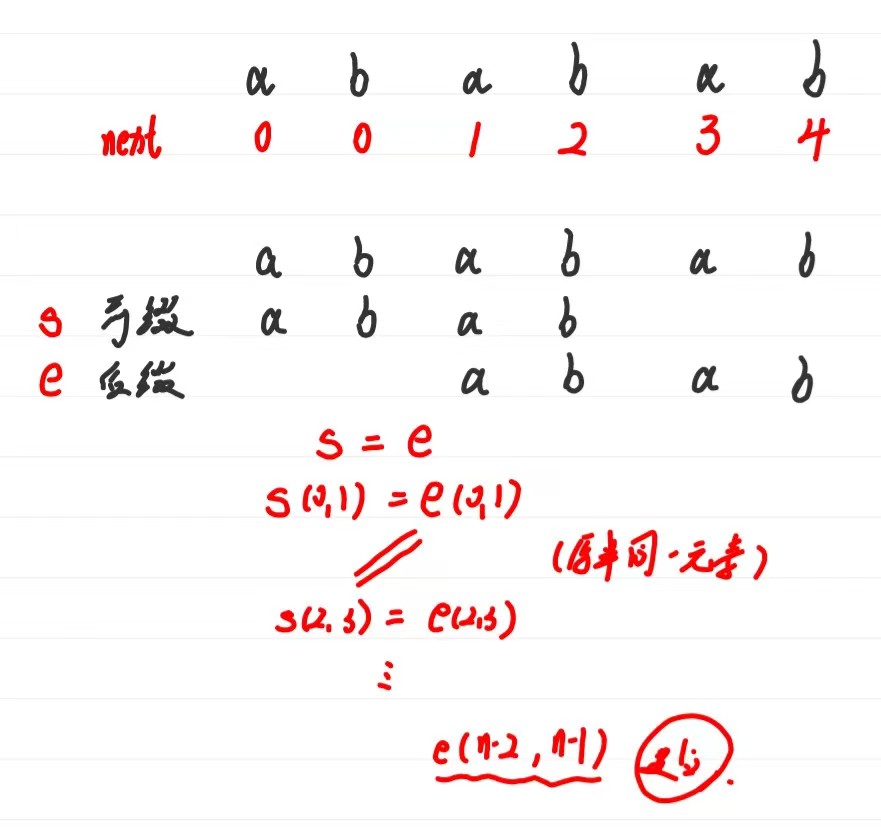 a b a b a b
next 0 0 1 2 3 4
a b a b a b
s 前缀 a b a b
e 后缀 a b a b
s = e
s(0,1) = e(0,1)
(原本同一元素)
s(2,3) = e(2,3)
⋮
e(n-2, n-1)